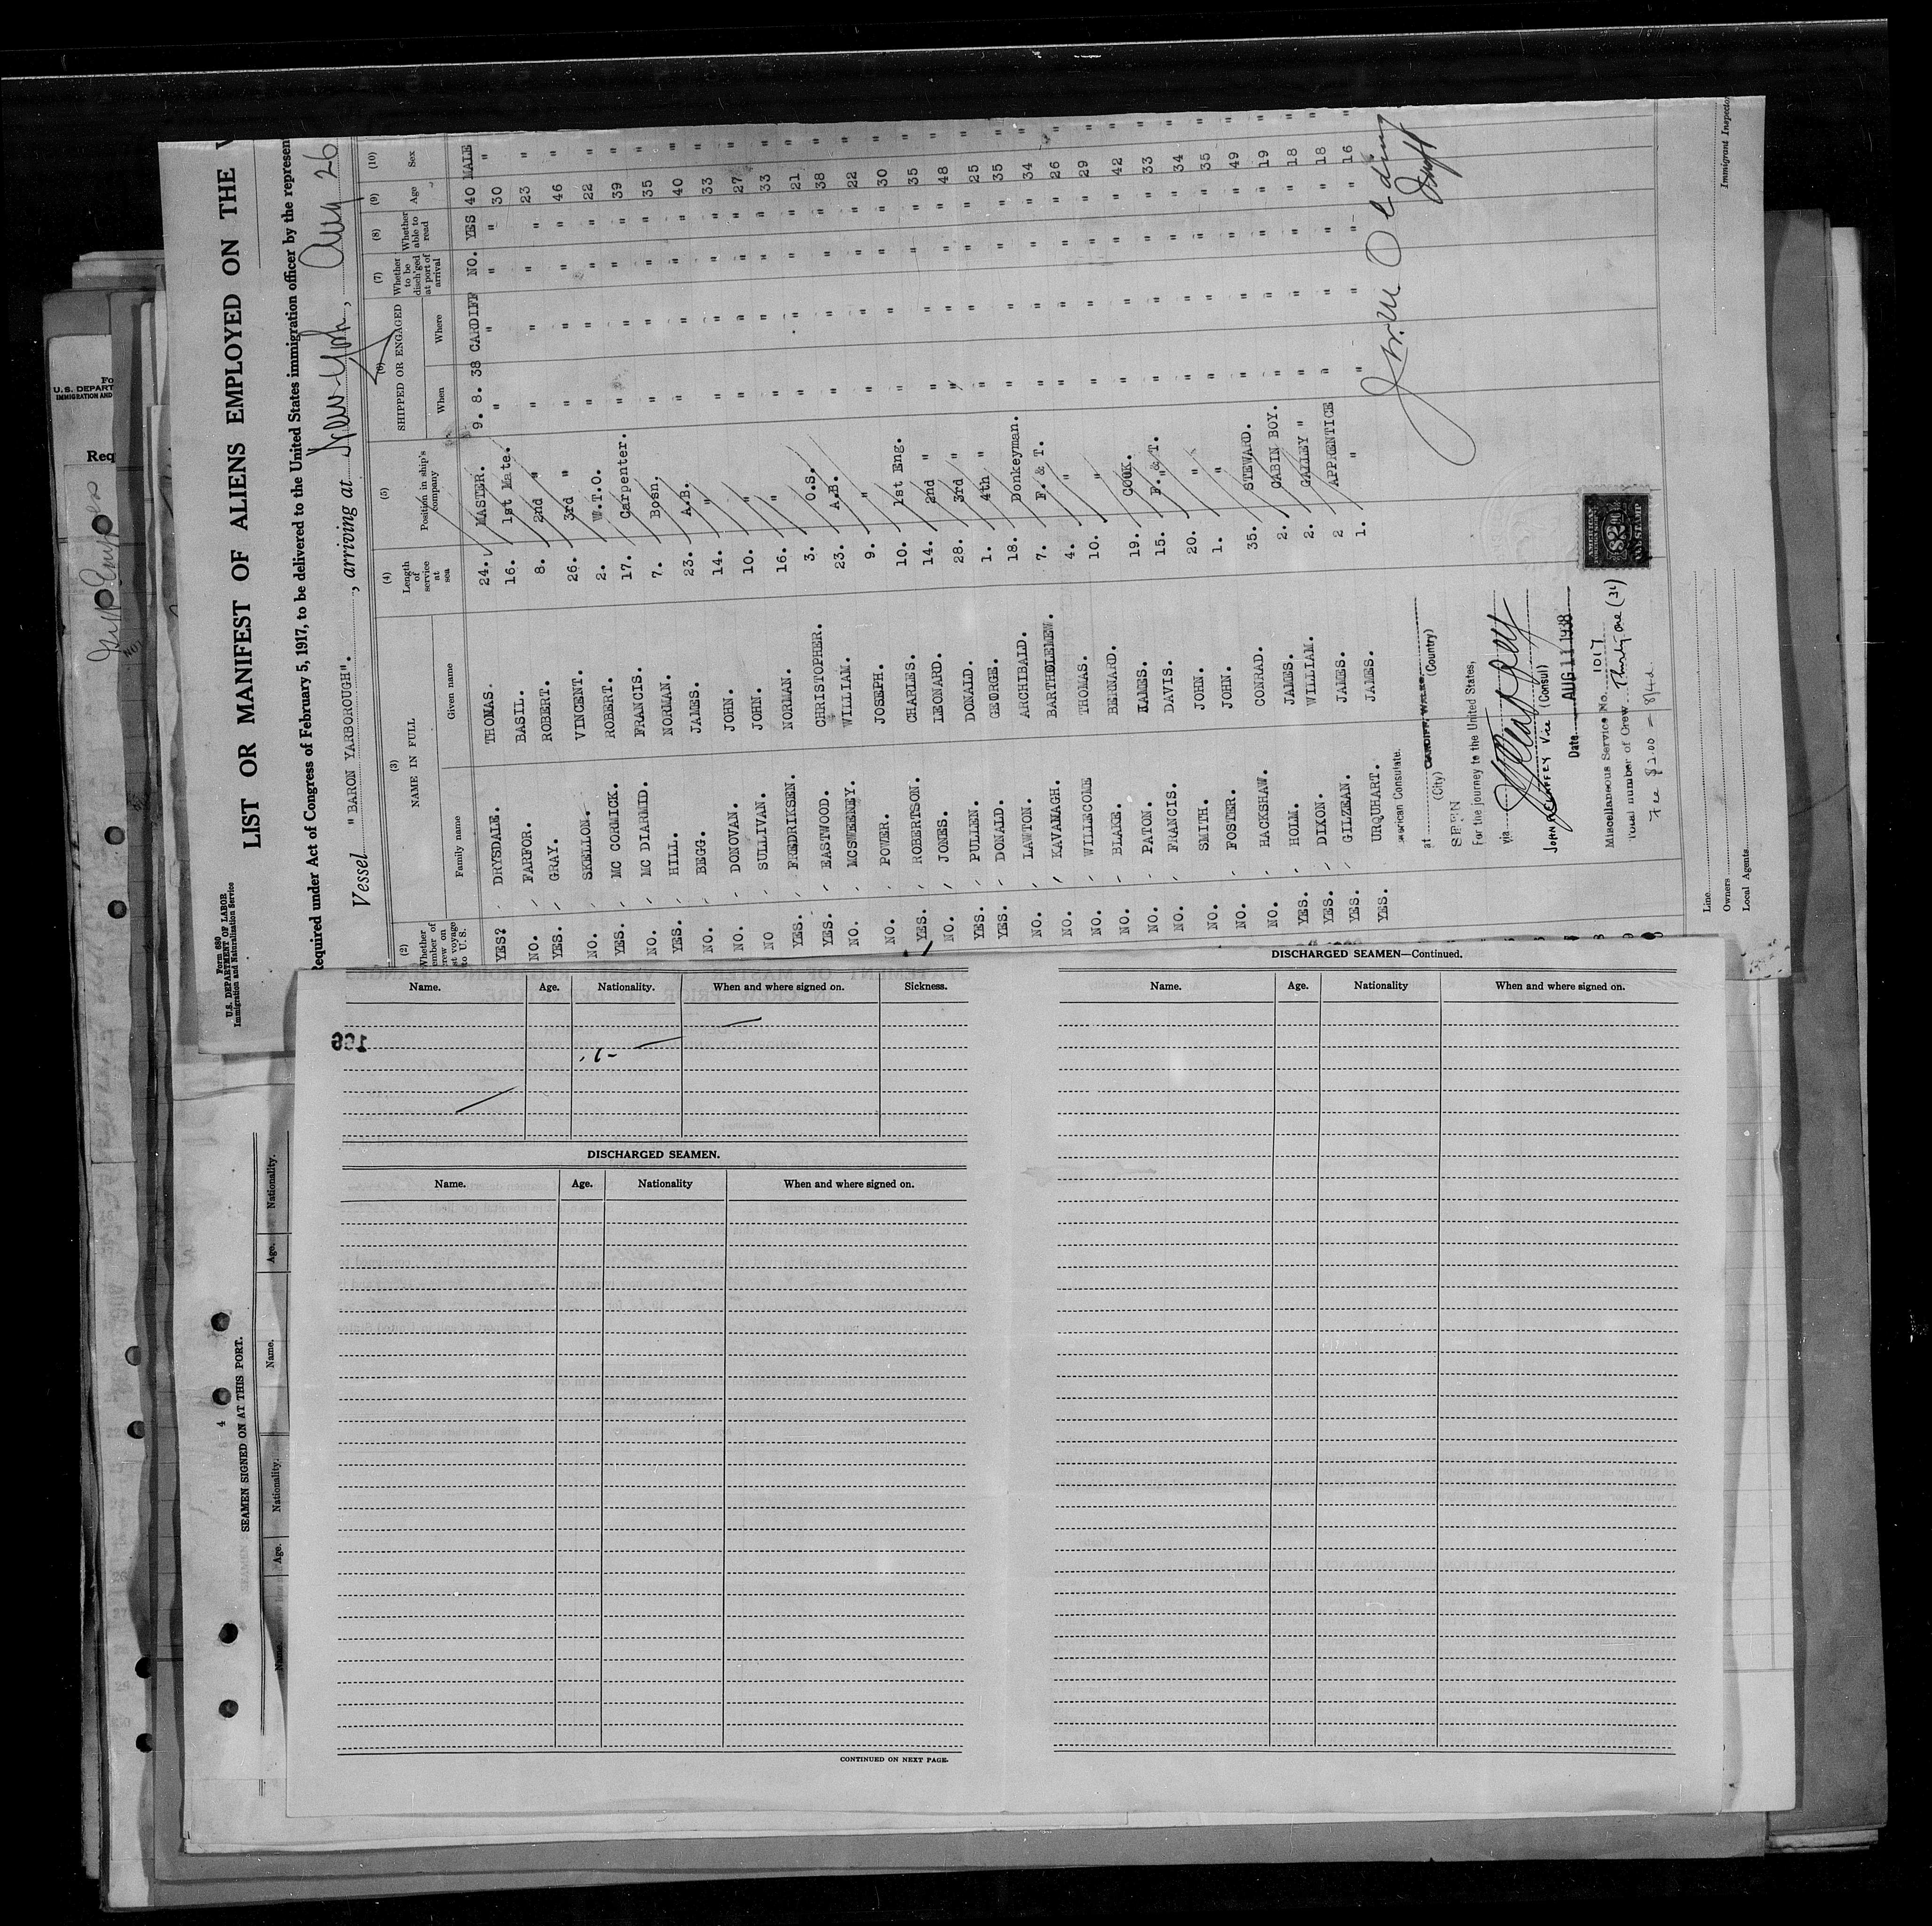 Form 680
U.S. DEPARTMENT OF LABOR
Immigration and Naturalization Service
LIST OR MANIFEST OF ALIENS EMPLOYED ON THE
Required under Act of Congress of February 5, 1917, to be delivered to the United States immigration officer by the represen
Vessel "BARON YARBOROUGH"., arriving at New York, Aug 26
(2) (3) (4) (5) (6) (7) (8) (9) (10)
Whether member of crew on last voyage to U.S. NAME IN FULL Length of service at sea Position in ship's company SHIPPED OR ENGAGED Whether to be disch'ged at port of arrival Whether able to read Age Sex
Family name Given name When Where
YES? DRYSDALE. THOMAS. 24. MASTER. 9. 8. 38 CARDIFF NO. YES 40 MALE
NO. FARFOR. BASIL. 16. 1st Mate. " " " " 30 "
YES. GRAY. ROBERT. 8. 2nd " " " " " 23 "
NO. SKELLON. VINCENT. 26. 3rd " " " " " 46 "
YES. MC CORMICK. ROBERT. 2. W.T.O. " " " " 22 "
NO. MC DIARMID. FRANCIS. 17. Carpenter. " " " " 39 "
YES. HILL. NORMAN. 7. Bosn. " " " " 35 "
NO. BEGG. JAMES. 23. A.B. " " " " 40 "
NO. DONOVAN. JOHN. 14. " " " " " 33 "
NO SULLIVAN. JOHN. 10. " " " " " 27 "
YES. FREDRIKSEN. NORMAN. 16. " " " " " 33 "
YES. EASTWOOD. CHRISTOPHER. 3. O.S. " " " " 21 "
NO. MCSWEENEY. WILLIAM. 23. A.B. " " " " 38 "
NO. POWER. JOSEPH. 9. " " " " " 22 "
YES. ROBERTSON. CHARLES. 10. 1st Eng. " " " " 30 "
NO. JONES. LEONARD. 14. 2nd " " " " " 35 "
YES. PULLEN. DONALD. 28. 3rd " " " " " 48 "
YES. DONALD. GEORGE. 1. 4th " " " " " 25 "
NO. LAWTON. ARCHIBALD. 18. Donkeyman. " " " " 35 "
NO. KAVANAGH. BARTHOLEMEW. 7. F. & T. " " " " 34 "
NO. WILLECOME THOMAS. 4. " " " " " 26 "
NO. BLAKE. BERNARD. 10. " " " " " 29 "
NO. PATON. JAMES. 19. COOK. " " " " 42 "
NO. FRANCIS. DAVIS. 15. F. & T. " " " " 33 "
NO. SMITH. JOHN. 20. " " " " " 34 "
NO. FOSTER. JOHN. 1. " " " " " 35 "
NO. HACKSHAW. CONRAD. 35. STEWARD. " " " " 49 "
YES. HOLM. JAMES. 2. CABIN BOY. " " " " 19 "
YES. DIXON. WILLIAM. 2. GALLEY " " " " " 18 "
YES. GILZEAN. JAMES. 2 APPRENTICE " " " " 18 "
YES. URQUHART. JAMES. 1. " " " " " 16 "
American Consulate.
at CARDIFF, WALES.
(City) (Country)
SEEN
For the journey to the United States,
via
Vice (Consul)
Date AUG 11 1938
Miscellaneous Service No. 1017
Total number of Crew Thirty one (31)
Fee $2.00 = 8/4d.
AMERICAN
$2.00
STAMP
Line
Owners
Local Agents
Immigrant Inspector
U.S. DEPART
IMMIGRATION AND
Req
Name. Age. Nationality. When and where signed on. Sickness.
DISCHARGED SEAMEN.
Name. Age. Nationality When and where signed on.
CONTINUED ON NEXT PAGE.
DISCHARGED SEAMEN—Continued.
Name. Age. Nationality When and where signed on.
SEAMEN SIGNED ON AT THIS PORT.
Name. Age. Nationality. Name. Age. Nationality.